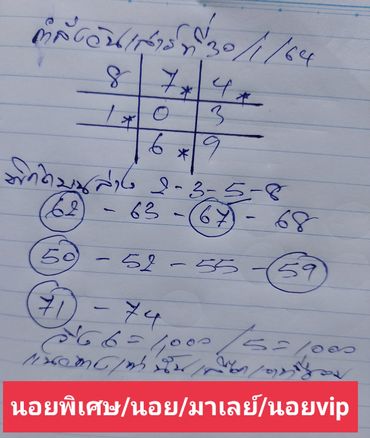 กำลังวันเสาร์ที่ 30/1/64
8 7* 4*
1* 0 3
6* 9
บนล่าง 2-3-5-8
62 - 63 - 67 - 68
50 - 52 - 55 - 59
71 - 74
วิ่ง 6=1,000/5=1000
แนวทางเท่านั้น
นอยพิเศษ/นอย/มาเลย์/นอยvip